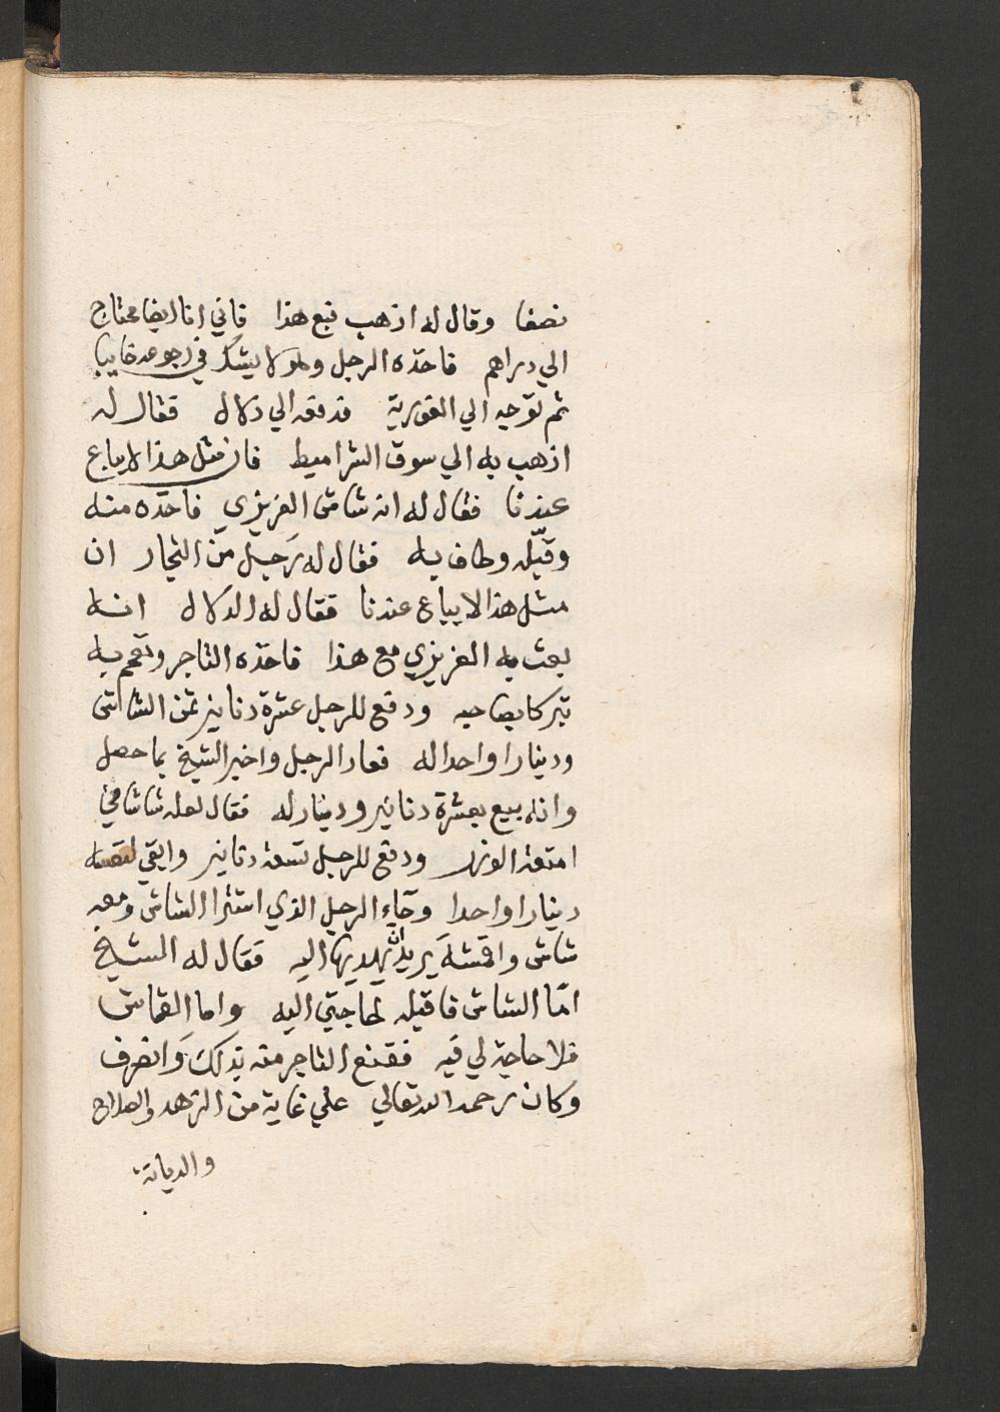 نصفا وقال له اذهب فبع هذا فاني انا ايضا محتاج
الي دراهم فاخذه الرجل وهو لا يشك في رجوعه خايبا
ثم توجه الي الغورية فدفعه الي دلال فقال له
اذهب به الي سوق الشراميط فان مثل هذا لا يباع
عندنا فقال له انه شاش العزيزي فاخذه منه
وقبّله وطاف به فقال له رَجل من التجار ان
مثل هذا لا يباع عندنا فقال له الدلال انه
بعث به العزيزي مع هذا فاخذه التاجر وتعمم به
تبركا بصاحبه ودفع للرجل عشرة دنانير ثمن الشاش
ودينارا واحدا له فعاد الرجل واخبر الشيخ بما حصل
وانه بيع بعشرة دنانير ودينار له فقال لعله شاشا في
امتعة الوزر ودفع للرجل تسعة دنانير وابقي لنفسه
دينارا واحدا وجاء الرجل الذي اشترا الشاش ومعه
شاش واقمشة يريد ان يهديها اليه فقال له الشيخ
امّا الشاش فاقبله لحاجتي اليه واما القماش
فلا حاجة لي فيه فقنع التاجر منه بذلك وَانصرف
وكان رحمه الله تعالي علي غاية من الزهد والصلاح
والديانة